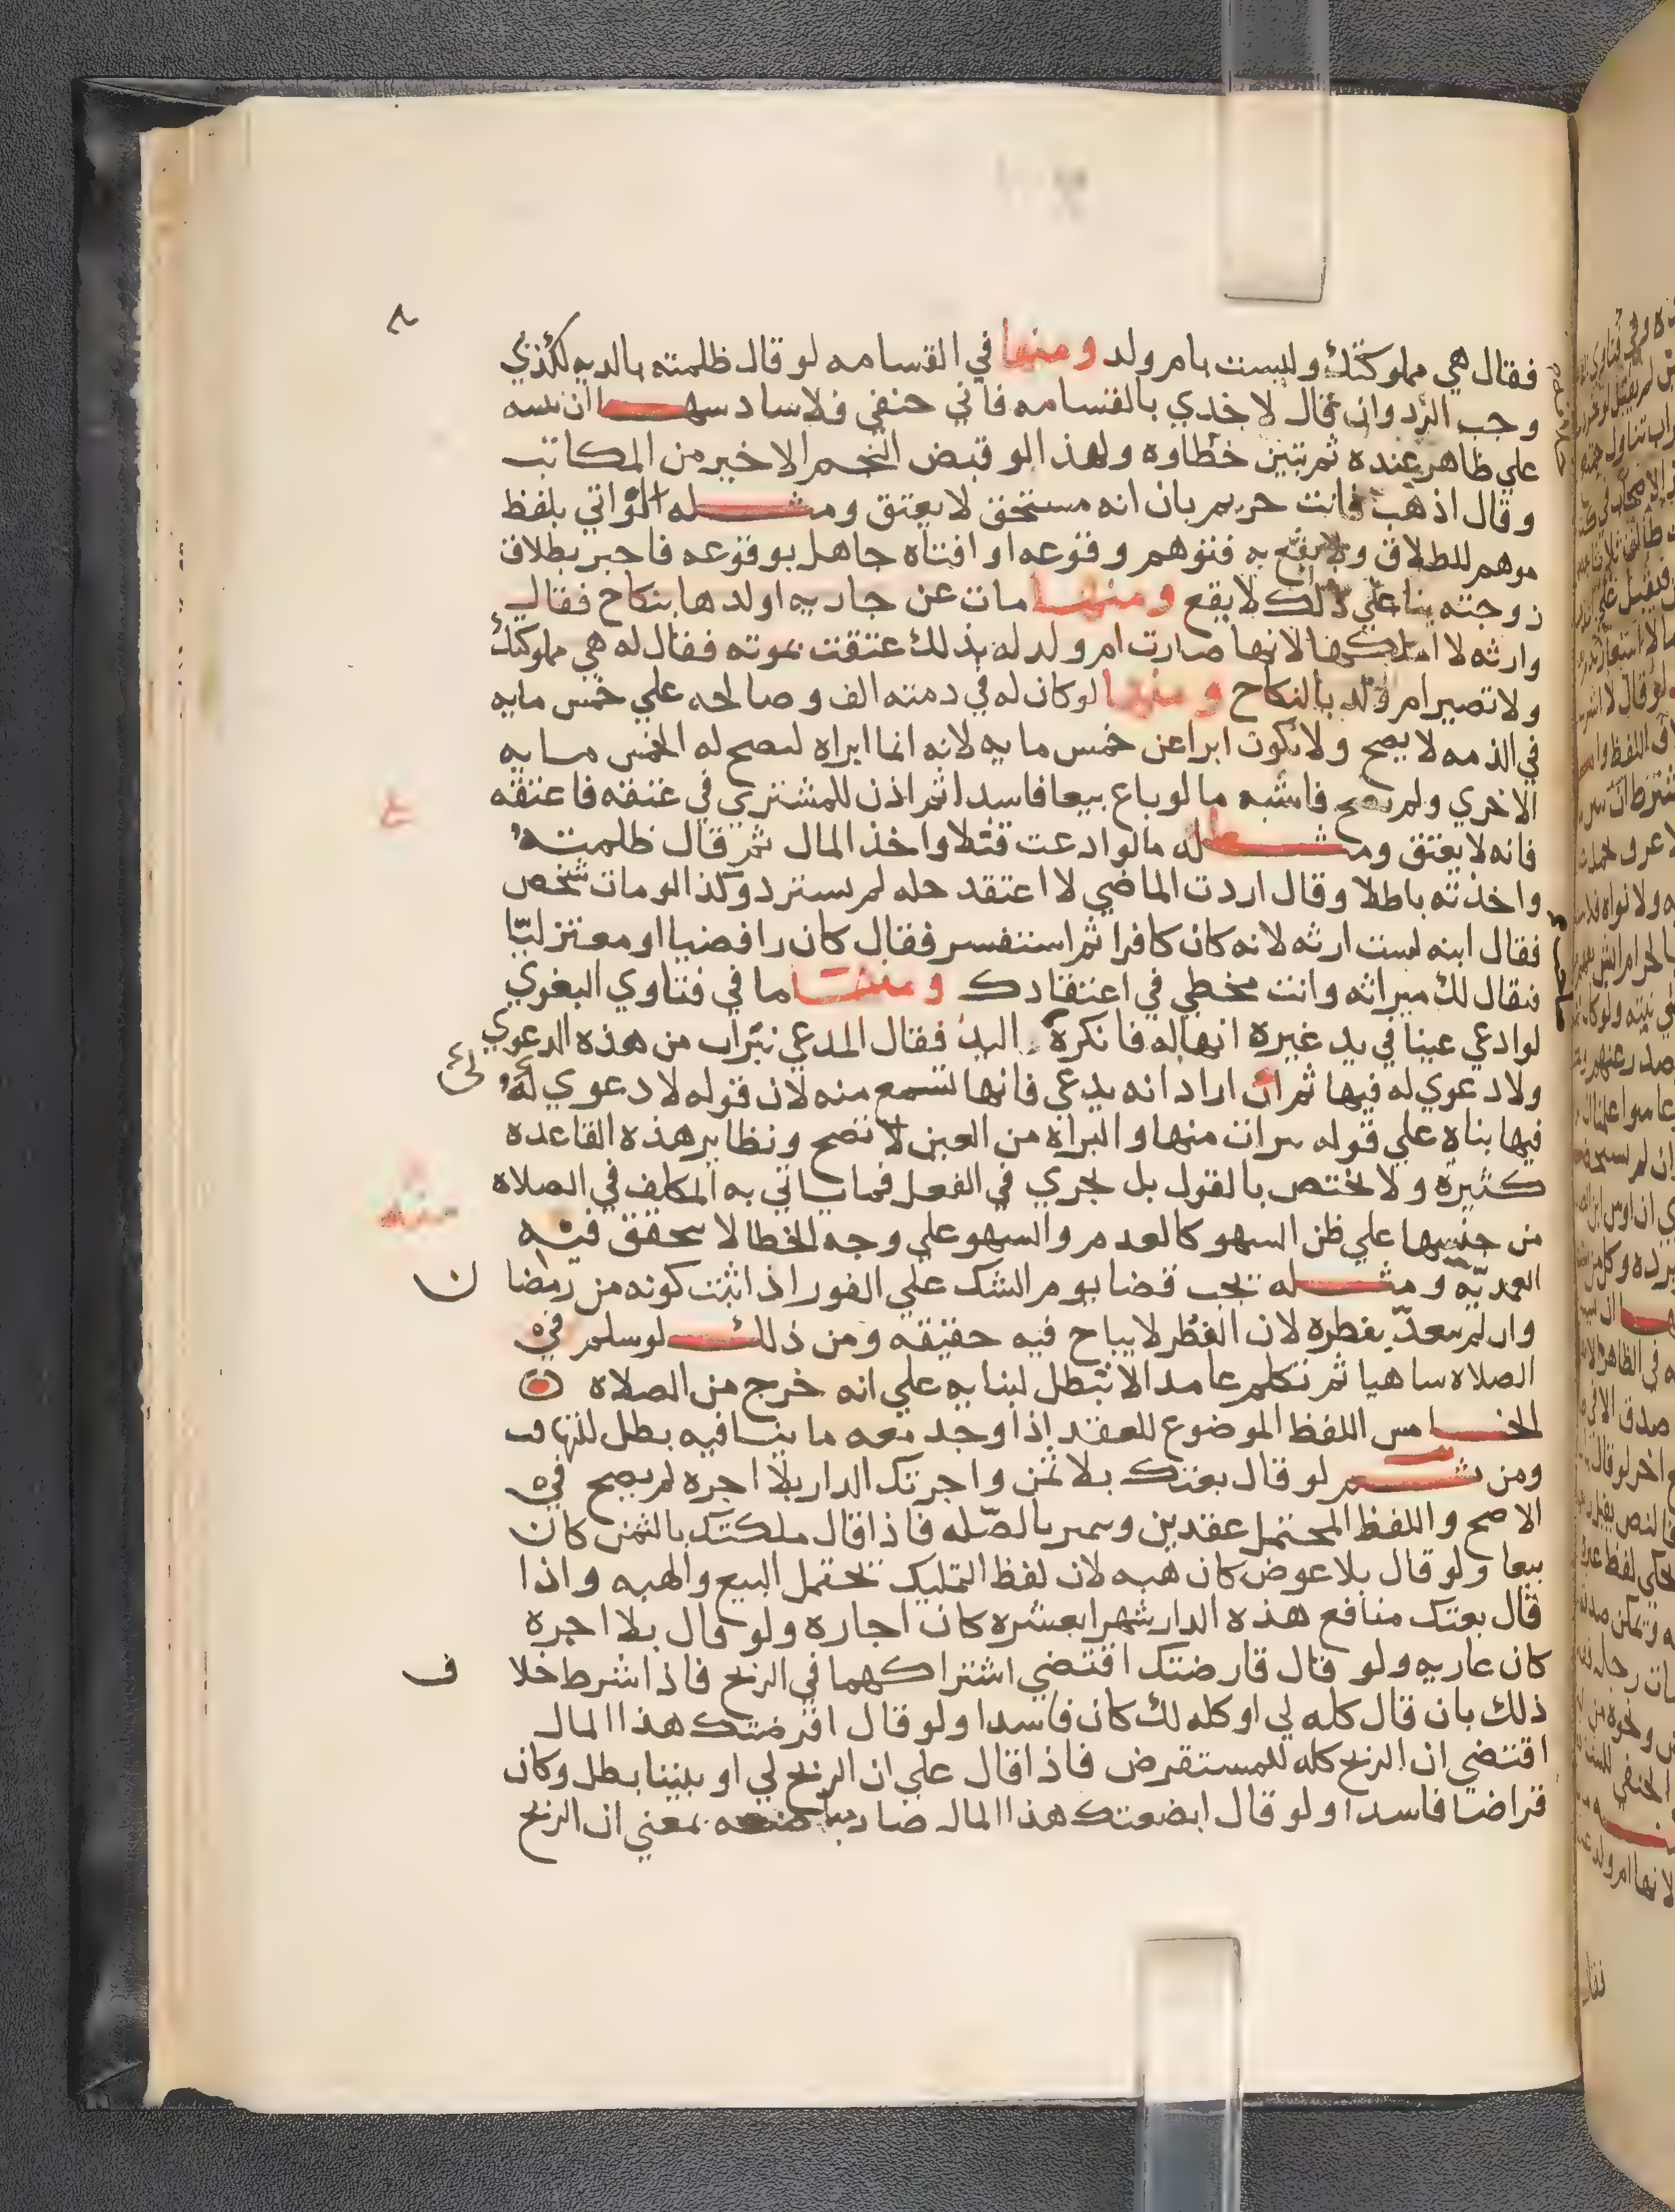 فقال هي مملوكتك وليست بام ولد ومنها في القسامه لو قال ظلمته بالديه لكذبي
وجب الرد وان قال لاخذي بالقسامه فاني حنفي فلا
علي ظاهر عنده ثم تبين خطاوه ولهذا لو قبض النجم الاخير من المكاتب
وقال اذهب فانت حر ثم بان انه مستحق لا يعتق ومثله اتواتي بلفظ
موهم للطلاق ولا يقع به فتوهم وقوعه او افتاه جاهل بوقوعه فاخبر بطلاق
زوجته بنا علي ذلك لا يقع ومنها مات عن جاريه اولدها بنكاح فقال
وارثه لا املكها لانها صارت ام ولد له بذلك عتقت بموته فقال له هي مملوكتك
ولا تصير ام ولد بالنكاح ومنها لو كان له في ذمته الف وصالحه علي خمس مايه
في الذمه لا يصح ولا يكون ابرا عن خمس مايه لانه انما ابراه ليصح له الخمس مايه
الاخري ولم يصح فاشبه ما لو باع بيعا فاسدا ثم اذن للمشتري في عتقه فاعتقه
فانه لا يعتق ومثله ما لو ادعت قتلا واخذ المال ثم قال ظلمته
واخذته باطلا وقال اردت الماضي لا اعتقد حله لم يسترد وكذا لو مات شخص
فقال ابنه لست ارثه لانه كان كافرا ثم استفسر فقال كان رافضيا او معتزليا
فيقال لك ميراثه وانت مخطي في اعتقادك ومنها ما في فتاوي البغوي
لو ادعي عينا في يد غيره انها له فانكره اليد فقال المدعي تبرات من هذه الدعوي
ولا دعوي له فيها ثم ان اراد انه يدعي فانها تسمع منه لان قوله لا دعوي له
فيها بناه علي قوله برات منها والبراة من العين لا تصح ونظاير هذه القاعده
كثيرة ولا تختص بالقول بل تجري في الفعل فما ياتي به المكلف في الصلاه
من جنسها علي ظن السهو كالعدم والسهو علي وجه الخطا لا يتحقق فيه
العمديه ومثله يجب قضا يوم الشك علي الفور اذا ثبت كونه من رمضا
وان لم يتعد بفطره لان الفطر لا يباح فيه حقيقه ومن ذلك لو سلم في
الصلاه ساهيا ثم تكلم عامدا لا تبطل لبنايه علي انه خرج من الصلاه
الخامس اللفظ الموضوع للعقد اذا وجد معه ما ينافيه بطل للتهافت
ومن ثم لو قال بعتك بلا ثمن واجرتك الدار بلا اجره لم يصح في
الاصح واللفظ المحتمل عقدين ويميز بالصله فاذا قال ملكتك بالثمن كان
بيعا ولو قال بلا عوض كان هبه لان لفظ التمليك يحتمل البيع والهبه واذا
قال بعتك منافع هذه الدار شهرا بعشره كان اجاره ولو قال بلا اجره
كان عاريه ولو قال قارضتك اقتضي اشتراكهما في الربح فاذا شرط خلا
ف
ذلك بان قال كله لي او كله لك كان فاسدا ولو قال اقرضتك هذا المال
اقتضي ان الربح كله للمستقرض فاذا قال علي ان الربح لي او بيننا بطل وكان
قراضا فاسدا ولو قال ابضعتك هذا المال صار بمعني ان الربح